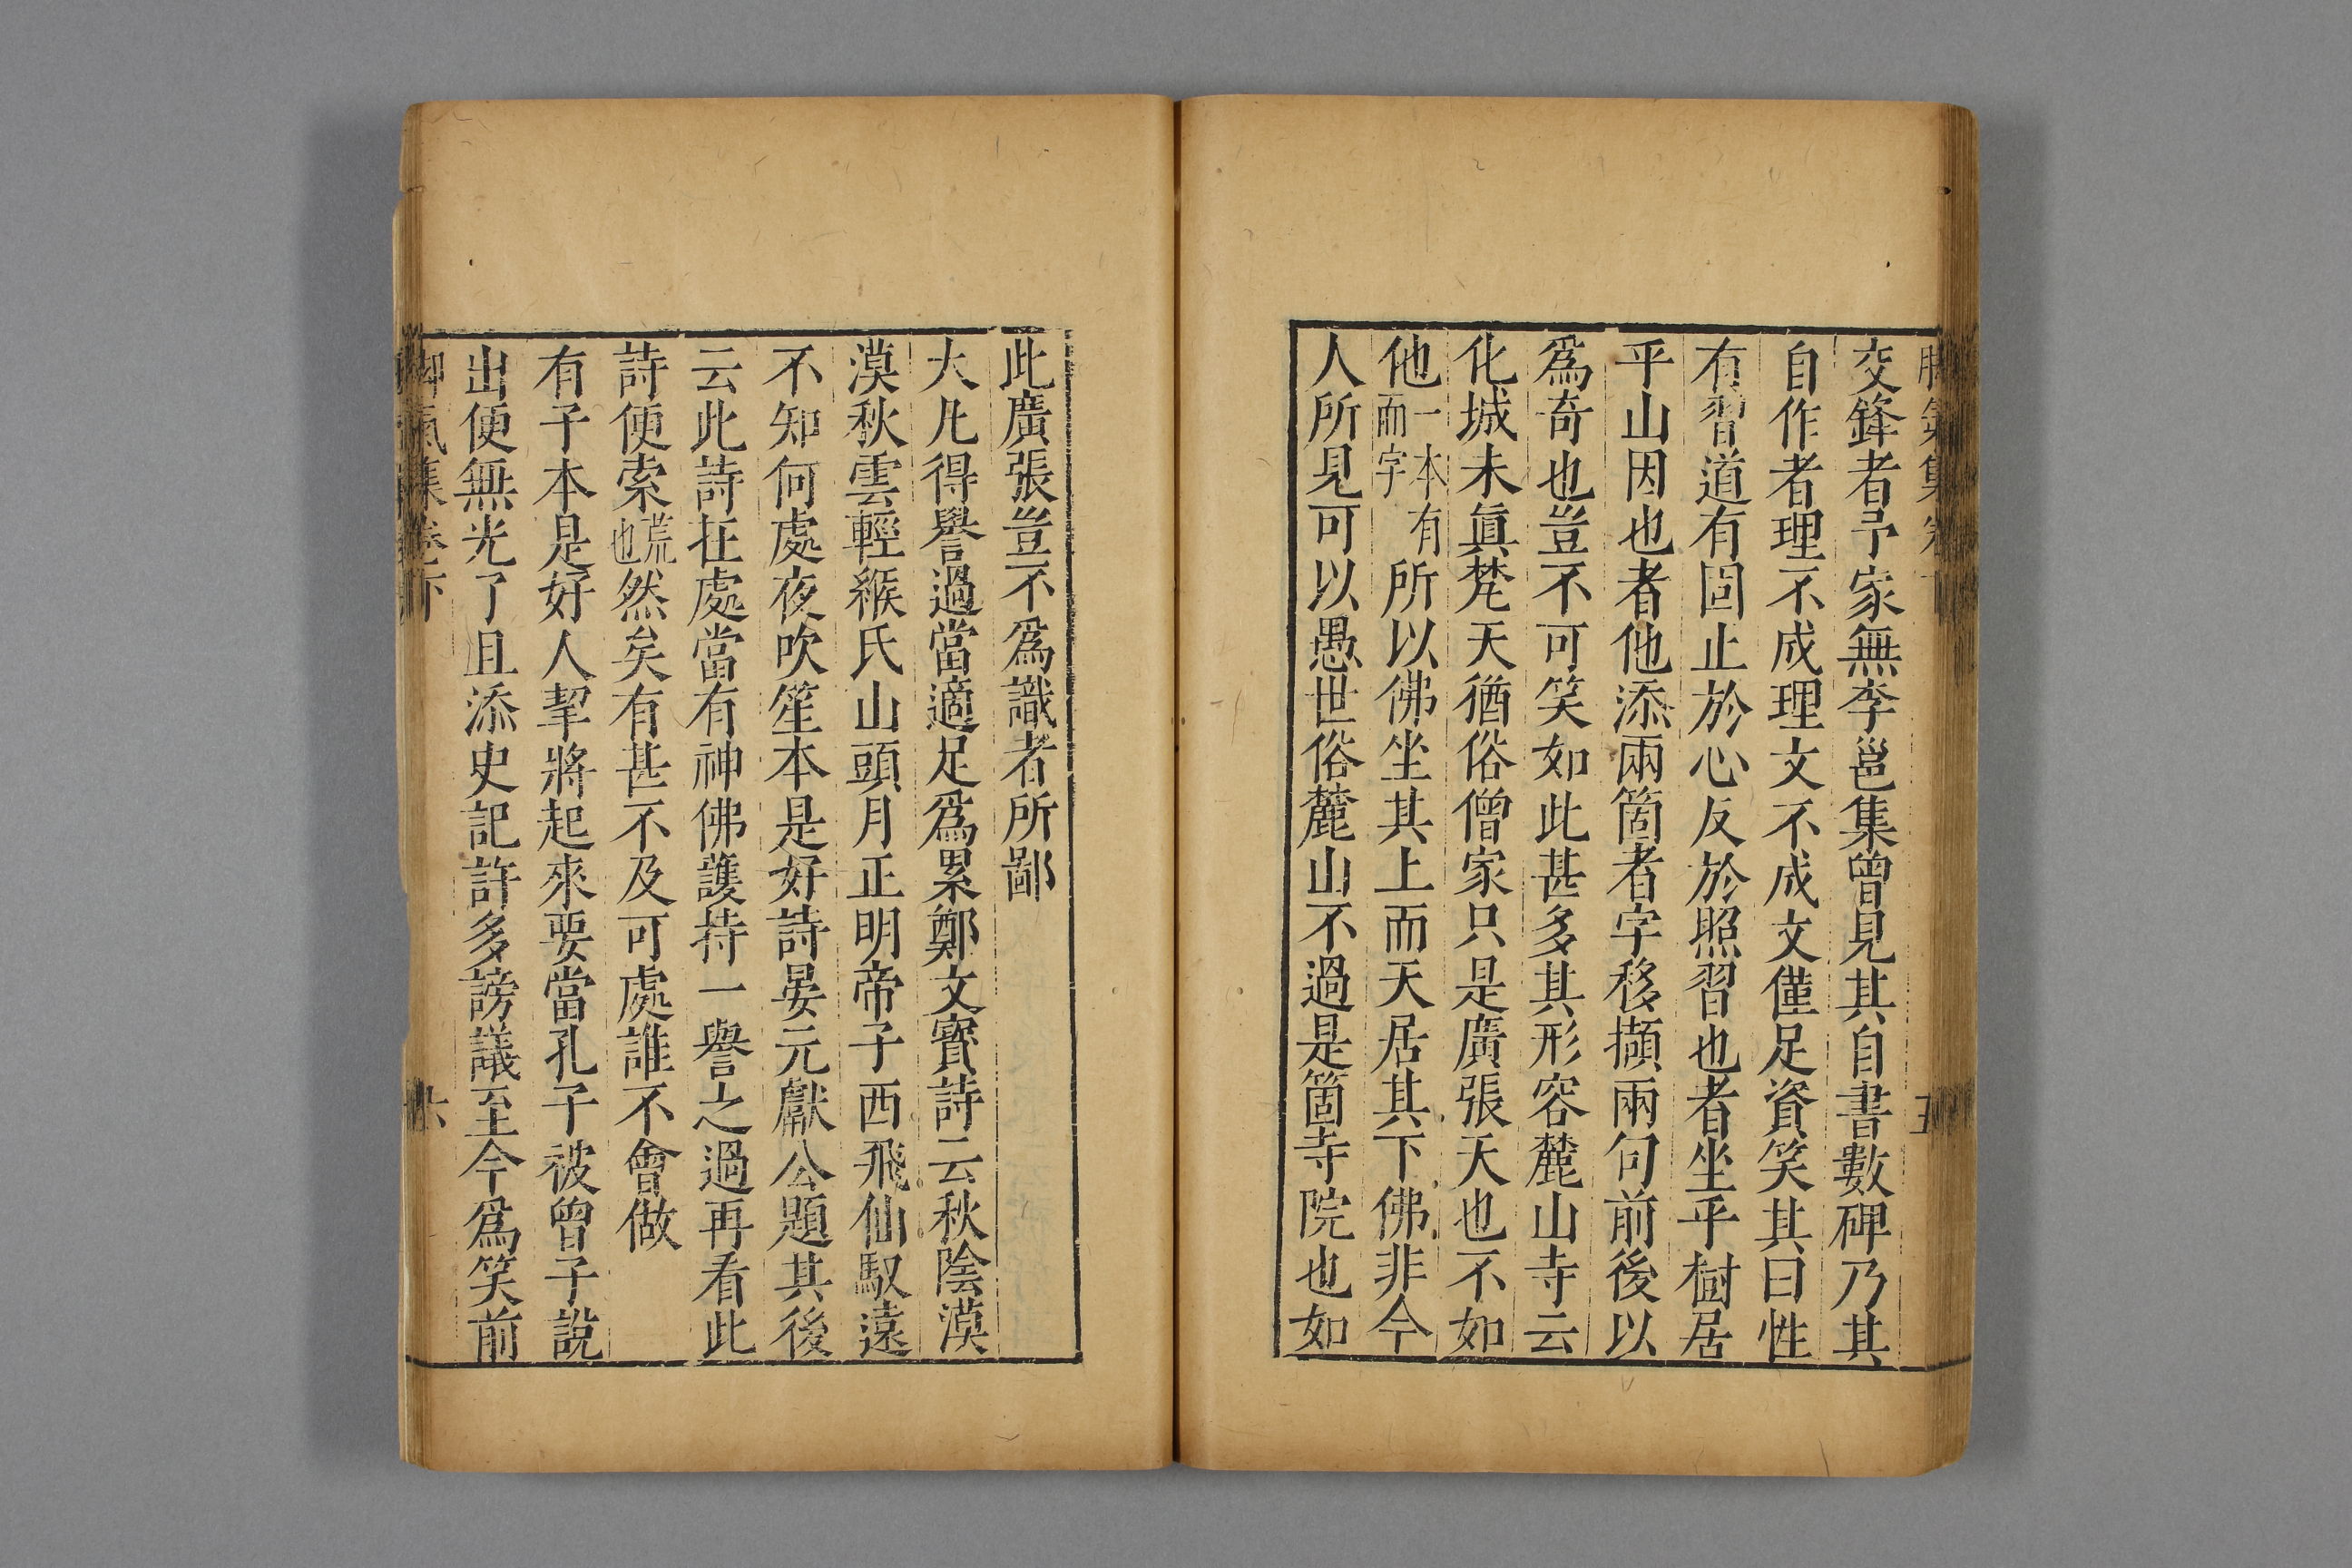 交鋒者予家無李邕集曾見其自書數碑乃其
自作者理不成理文不成文僅足資笑其曰性
有習道有固止於心反於照習也者坐乎樹居
乎山因也者他添兩箇者字移擷兩句前後以
爲奇也豈不可笑如此甚多其形容麓山寺云
化城未眞梵天猶俗僧家只是廣張天也不如
他一本有而字所以佛坐其上而天居其下佛非今
人所見可以愚世俗麓山不過是箇寺院也如
此廣張豈不爲識者所鄙
大凡得譽過當適足爲累鄭文寳詩云秋陰漠
漠秋雲輕緱氏山頭月正明帝子西飛仙馭遠
不知何處夜吹笙本是好詩晏元獻公題其後
云此詩在處當有神佛護持一譽之過再看此
詩便索慌也然矣有甚不及可處誰不會做
有子本是好人挈將起來要當孔子被曾子說
出便無光了且添史記許多謗議至今爲笑前
脚氣集卷下 六